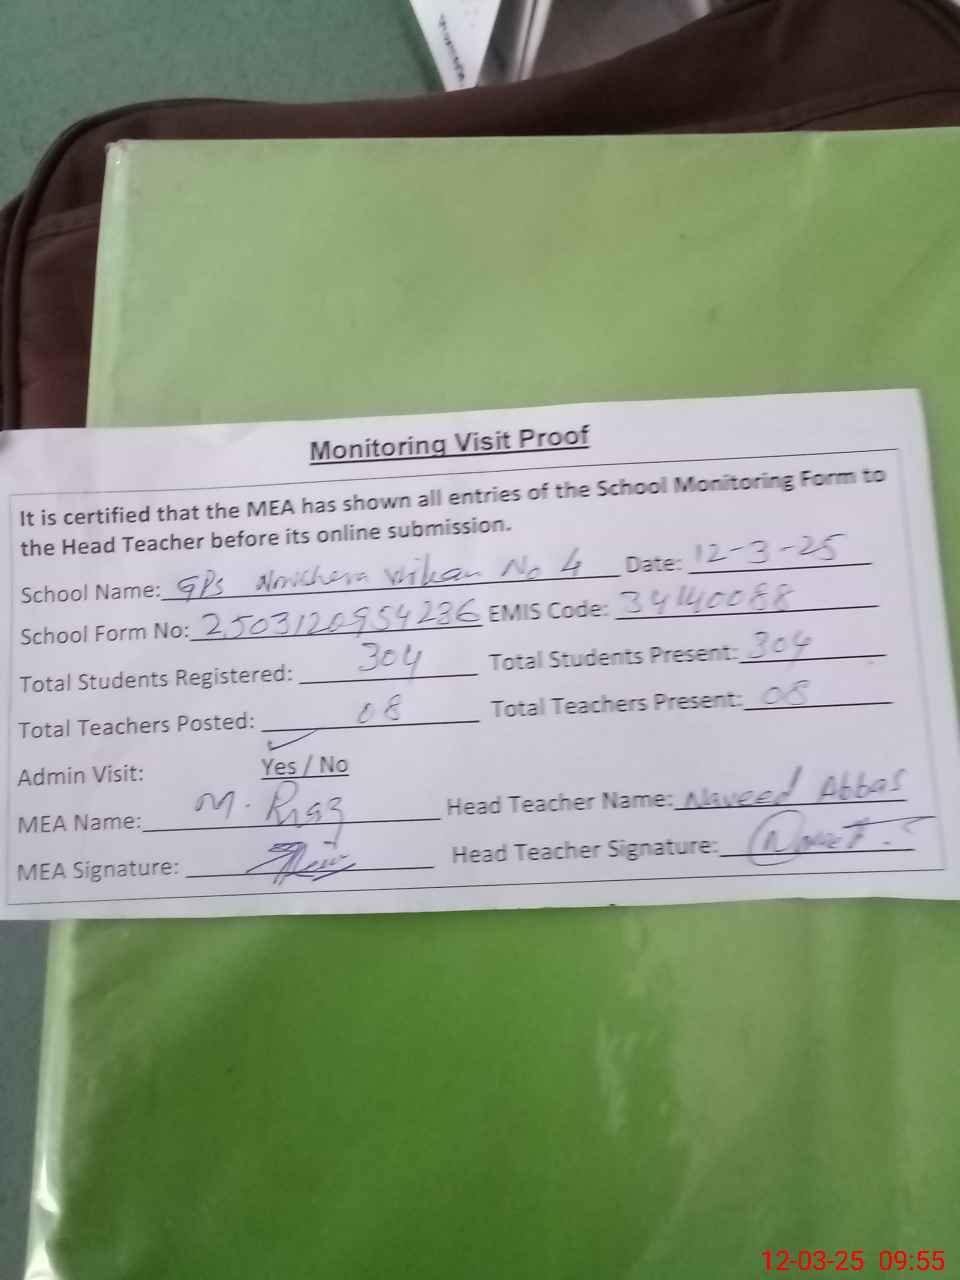 Monitoring Visit Proof
It is certified that the MEA has shown all entries of the School Monitoring Form to
the Head Teacher before its online submission.
School Name: GPS No 4 Date: 12-3-25
School Form No: 2503120954236 EMIS Code: 34140088
Total Students Registered: 304 Total Students Present: 304
Total Teachers Posted: 08 Total Teachers Present: 08
Admin Visit: Yes / No
MEA Name: M. Riaz Head Teacher Name: Naveed Abbas
MEA Signature: Head Teacher Signature:
12-03-25 09:55